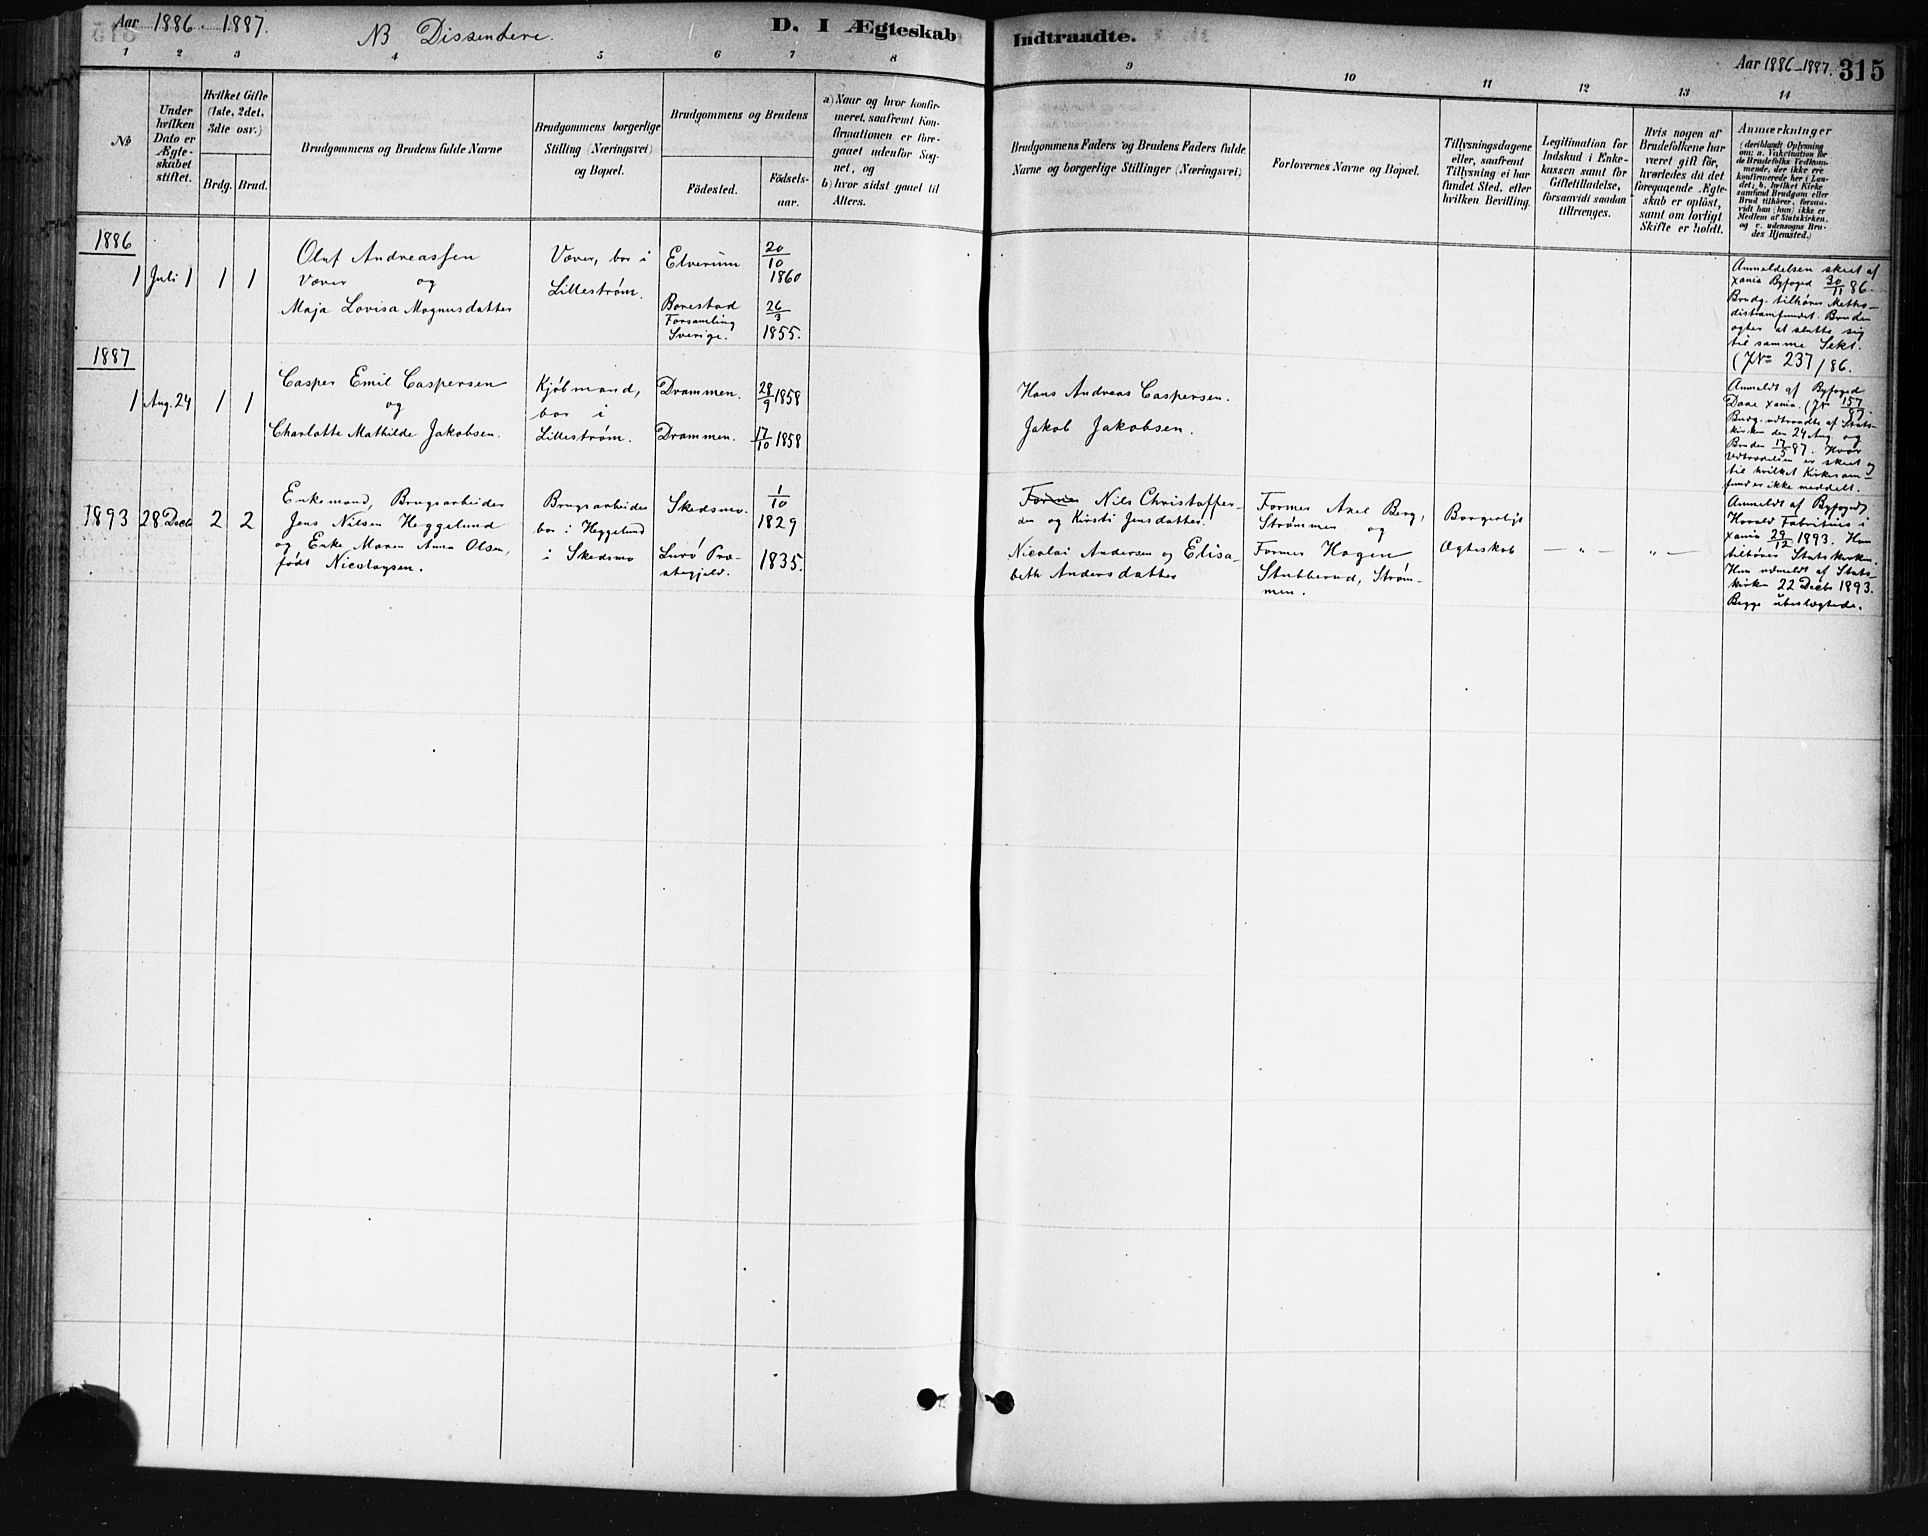 Aar 1886-1887.
NB Dissentere.
D. I Ægteskab
Indtraadte.
Aar 1886-1887.
315
1
2
3
4
5
6
7
8
9
10
11
12
13
14
No
Under hvilken Dato er Ægteskabet stiftet.
Hvilket Gifte (1ste, 2det, 3die osv.)
Brdg. Brud.
Brudgommens og Brudens fulde Navne
Brudgommens borgerlige Stilling (Næringsvei) og Bopæl.
Brudgommens og Brudens
Födested.
Födsels-aar.
a) Naar og hvor konfirmeret, saafremt Konfirmationen er foregaaet udenfor Sognet, og
b) hvor sidst gaaet til Alters.
Brudgommens Faders og Brudens Faders fulde Navne og borgerlige Stillinger (Næringsvei)
Forlovernes Navne og Bopæl.
Tillysningsdagene eller, saafremt Tillysning ei har fundet Sted, efter hvilken Bevilling.
Legitimation for Indskud i Enkekassen samt for Giftetilladelse, forsaavidt saadan tiltrænges.
Hvis nogen af Brudefolkene har været gift för, hvorledes da det foregaaende Ægteskab er oplöst, samt om lovligt Skifte er holdt.
Anmærkninger
(deriblandt Oplysning om: a. Vaksination for de Brudefolks Vedkommende, der ikke ere konfirmerede her i Landet; b. hvilket Kirkesamfund Brudgom eller Brud tilhörer, forsaavidt han (hun) ikke er Medlem af Statskirken, og c. udensogns Brudes Hjemsted.)
1886
1 Juli 1 1 1
Oluf Andreassen
Væver og
Maja Lovisa Magnusdatter
Væver, bor i
Lillestrøm.
Elverum
20/10 1860
Borestad
Forsamling
Sverige.
26/3 1855.
Anmeldelsen skeet af
Xania Byfoged 30/11 86.
Brudg. tilhører Metho-
distsamfundet. Bruden
agter at slutte sig
til samme Sekt.
(JNo 237/86.
1887
1 Aug. 24 1 1
Casper Emil Caspersen
og
Charlotte Mathilde Jakobsen.
Kjøbmand,
bor i
Lillestrøm.
Drammen. 28/9 1858
Drammen. 17/10 1858
Hans Andreas Caspersen.
Jakob Jakobsen.
Anmeldt af Byfoged
Daae Xania. (JN 157/87.
Brdg. udtraadte af Stats-
kirken den 24 Aug. og
Bruden 17/5 87. Hvor
Vedtrædelsen er skeet og
til hvilket Kirkesam-
fund er ikke meddelt.
1893 28 Decb 2 2
Enkemand, Brugsarbeider
Jens Nilsen Heggelund
og Enke Maren Anna Olsen,
født Nicolaysen.
Brugsarbeider
bor i Heggelund
i Skedsmo
Skedsmo.
1/10 1829
Lurö Præ-
stegjeld.
1835.
Nils Christoffer-
sen og Kirsti Jensdatter.
Nicolai Andersen og Elisa-
beth Andersdatter
Former Axel Berg,
Strømmen og
Former Hagen
Stubberud, Strøm-
men.
Borgerligt
Ægteskab
— " —
" —
Anmeldt af Byfoged
Harald Fabritius i
Xania 29/12 1893. Han
tilhører Statskirken.
Hun udmeldt af Stats-
kirken 22 Decb 1893.
Begge ubeslægtede.